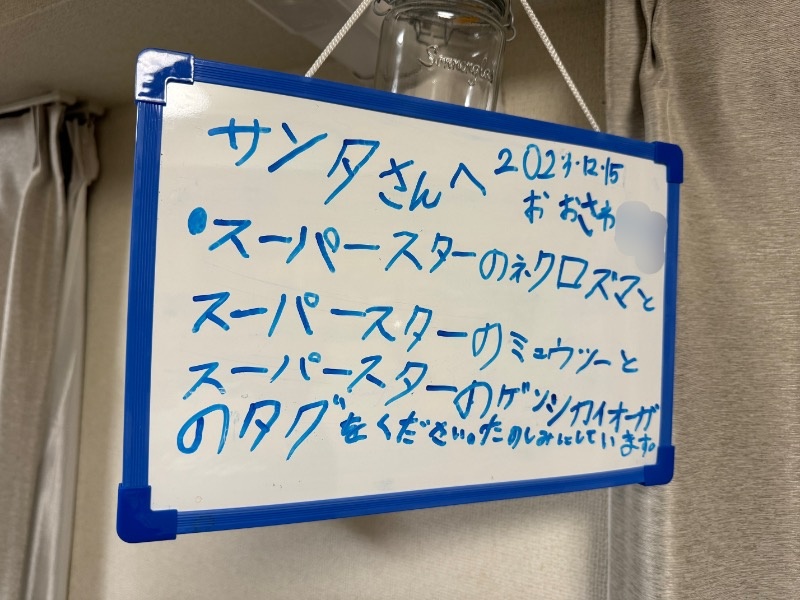 サンタさんへ
2023.12.15
おおさわ
・スーパースターのネクロズマと
スーパースターのミュウツーと
スーパースターのゲンシカイオーガ
のタグをください。たのしみにしています。